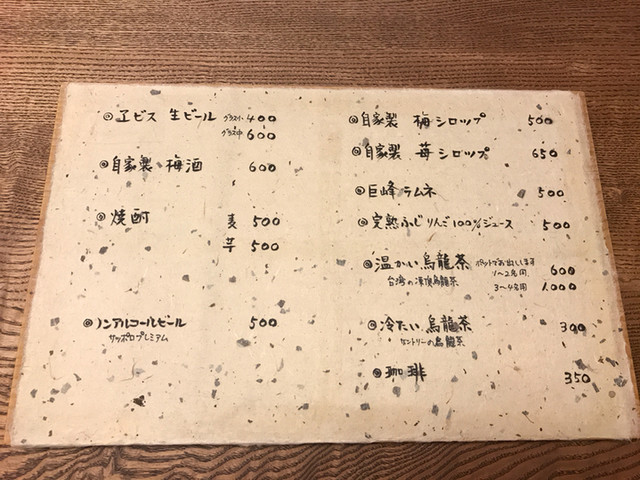 ◎ヱビス 生ビール グラス小 400
グラス中 600
◎自家製 梅酒 600
◎焼酎 麦 500
芋 500
◎ノンアルコールビール 500
サッポロプレミアム
◎自家製 梅シロップ 500
◎自家製 苺シロップ 650
◎巨峰ラムネ 500
◎完熟ふじりんご100%ジュース 500
◎温かい烏龍茶 ポットでお出しします
台湾の凍頂烏龍茶 1〜2名用 600
3〜4名用 1.000
◎冷たい烏龍茶 300
サントリーの烏龍茶
◎珈琲 350